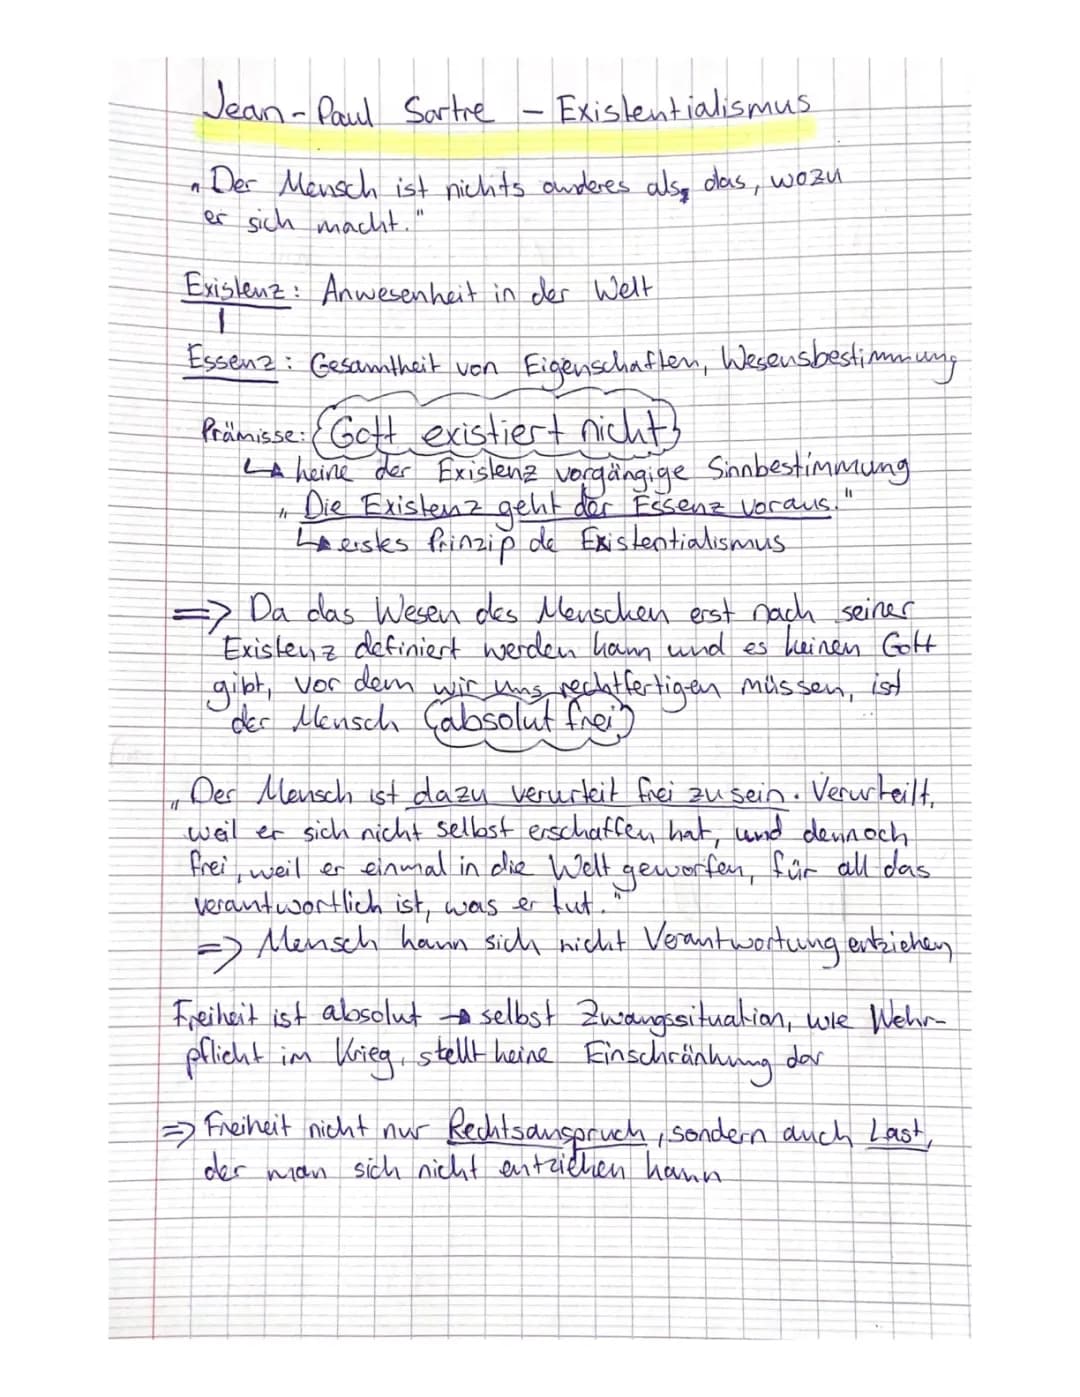 Jean-Paul Sartre – Existentialismus
„Der Mensch ist nichts anderes als, das, wozu
er sich macht."
Existenz: Anwesenheit in der Welt
Essenz: Gesamtheit von Eigenschaften, Wesensbestimmung
Prämisse: Gott existiert nicht
↳ keine der Existenz vorgängige Sinnbestimmung
„Die Existenz geht der Essenz voraus."
↳ erstes Prinzip de Existentialismus
=> Da das Wesen des Menschen erst nach seiner
Existenz definiert werden kann und es keinen Gott
gibt, vor dem wir uns rechtfertigen müssen, ist
der Mensch absolut frei
„Der Mensch ist dazu verurteit frei zu sein. Verurteilt,
weil er sich nicht selbst erschaffen hat, und dennoch
frei, weil er einmal in die Welt geworfen, für all das
verantwortlich ist, was er tut."
=> Mensch kann sich nicht Verantwortung entziehen
Freiheit ist absolut → selbst Zwangssituation, wie Wehr-
pflicht im Krieg, stellt keine Einschränkung dar
=> Freiheit nicht nur Rechtsanspruch, sondern auch Last,
der man sich nicht entziehen kann